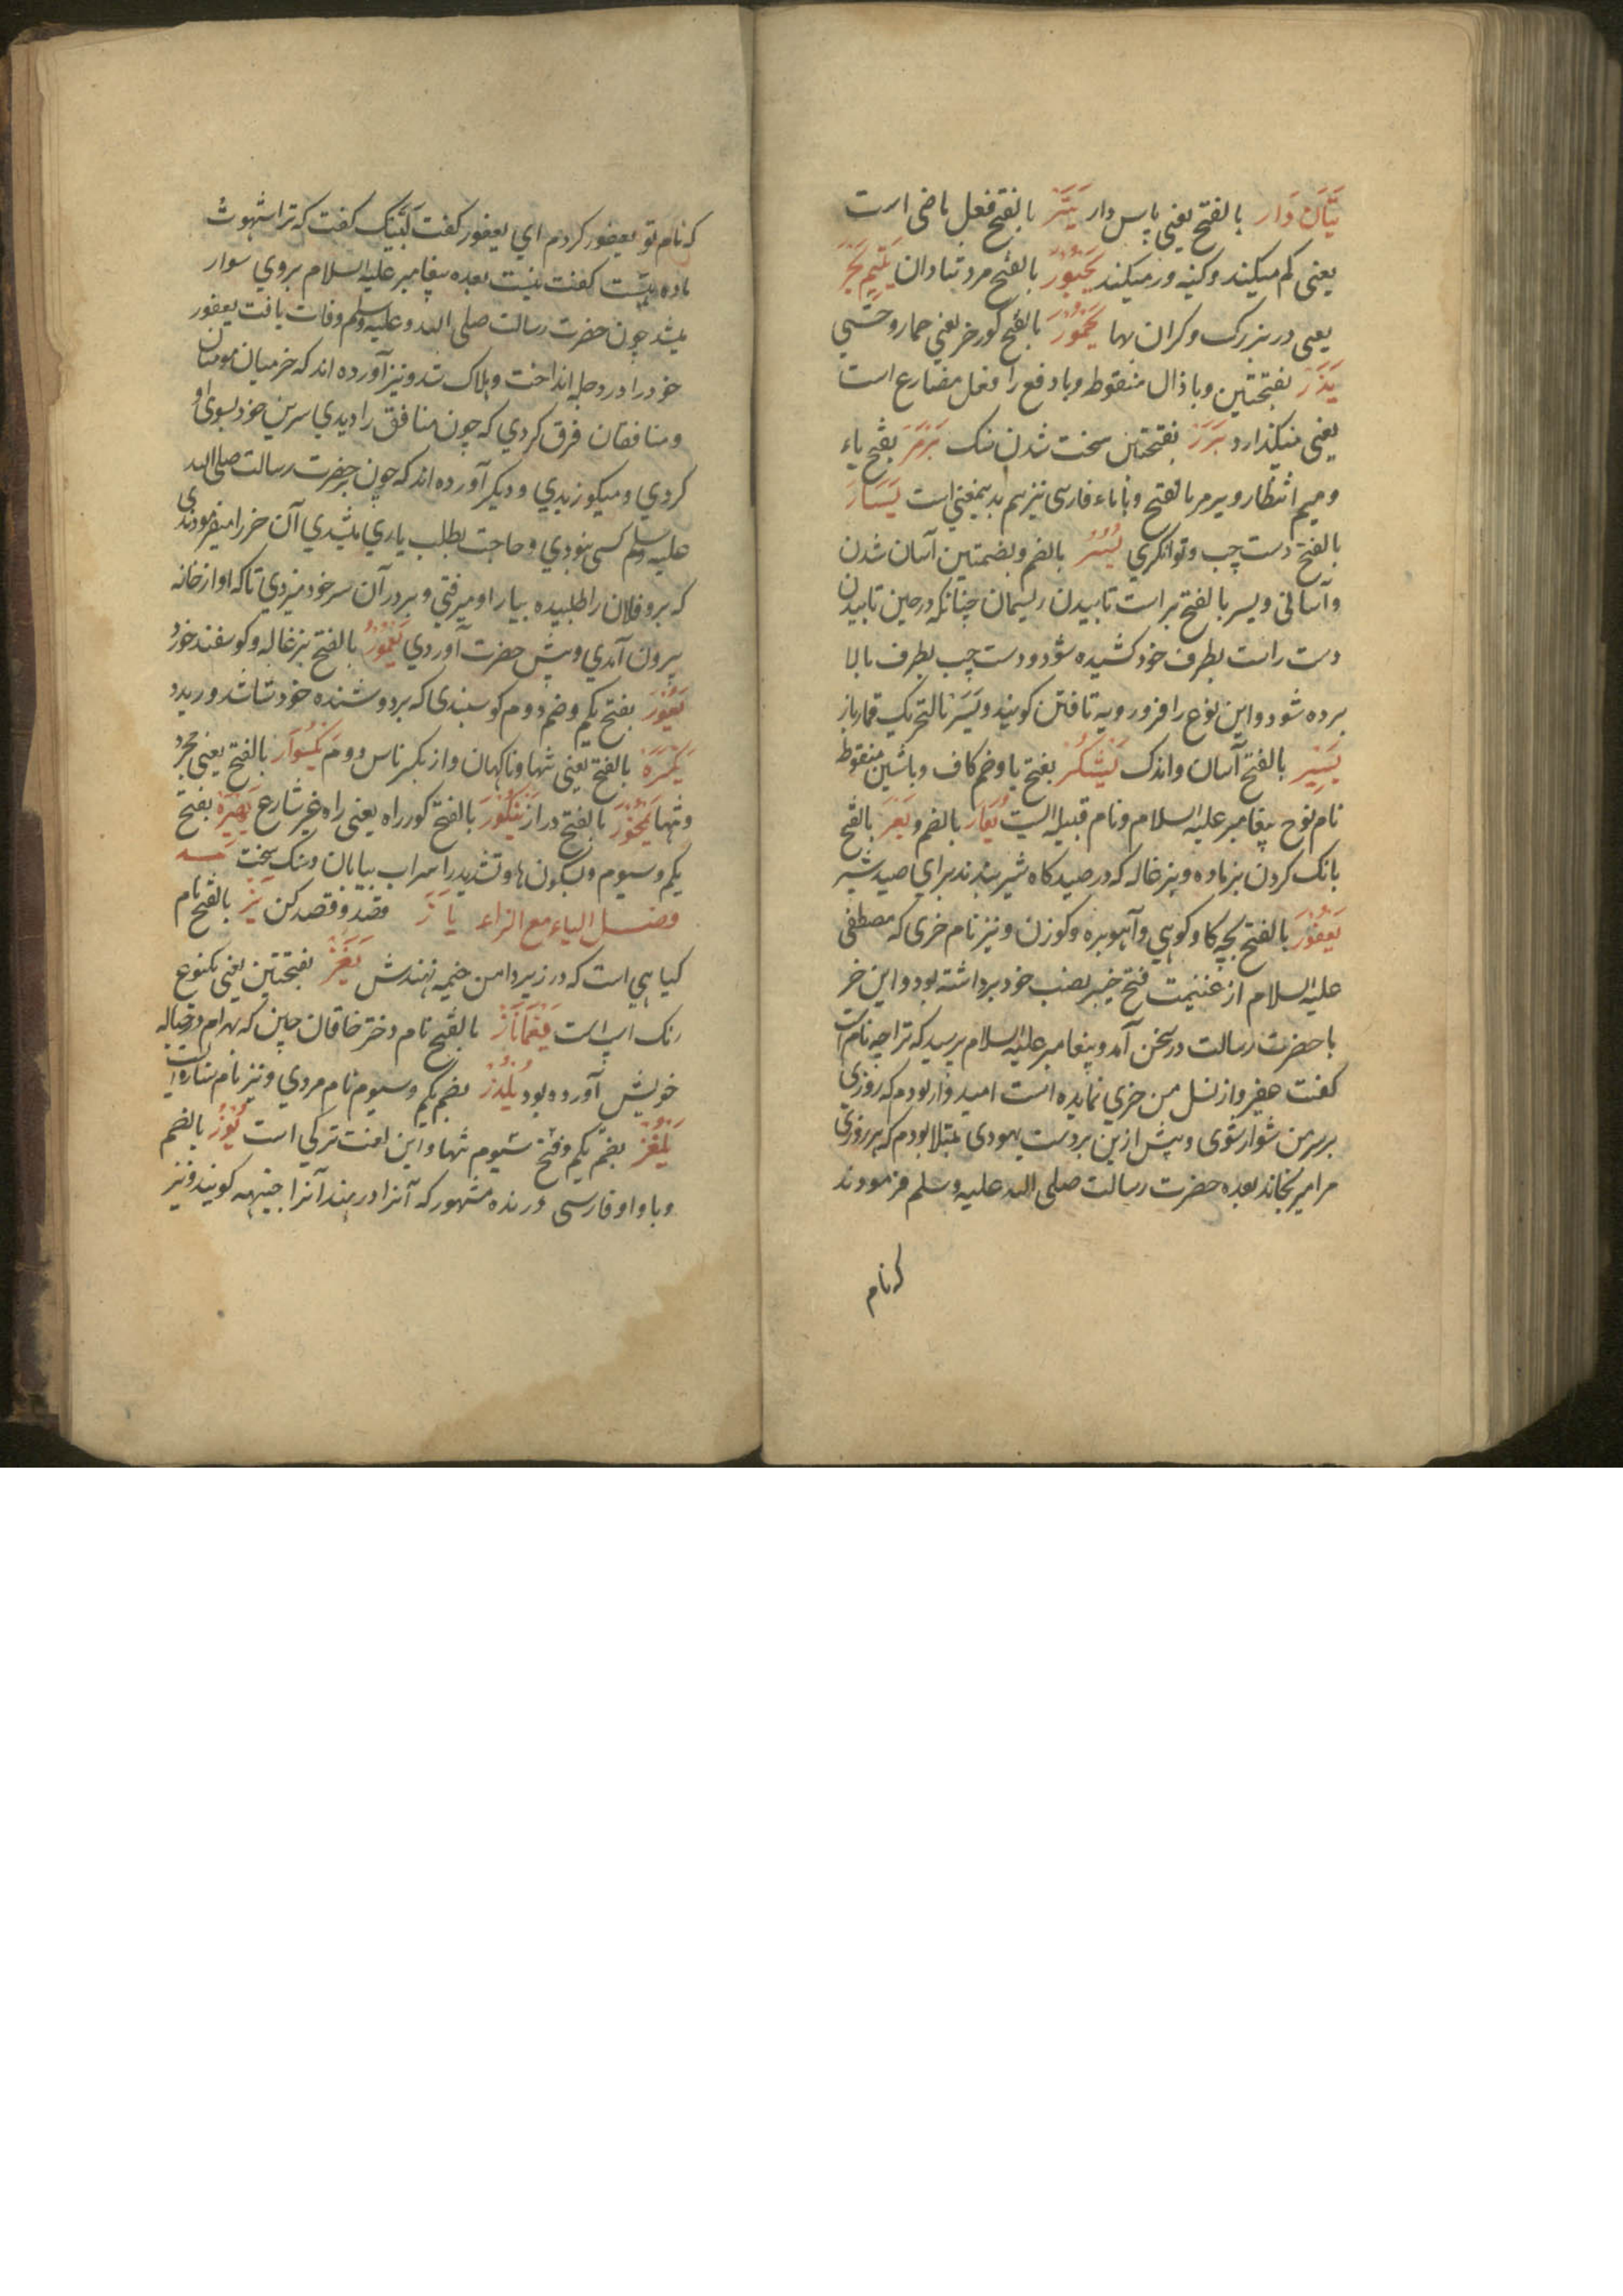 یتان دار بالفتح یعنی پاس دار یتر بالفتح فعل ماضی است
یعنی کم میکند و کینه ور میکند یحبور بالفتح مرد شادان یتیم بحر
یعنی در بزرک و کران بها یحمور بالفتح کورخر یعنی حمار وحشی
یذر بفتحتین و با ذال منقوط و با رفع را فعل مضارع است
یعنی میکذارد یرر بفتحتین سخت شدن سنک یرمر بفتح یاء
و میم انتظار و یرمر بالفتح و با یاء فارسی نیز هم بدینمعنی است یسار
بالفتح دست چپ و توانکری یسر بالضم و بضمتین آسان شدن
و آسانی و یسر بالفتح براست تابیدن ریسمان چنانکه در حین تابیدن
دست راست بطرف خود کشیده شود و دست چپ بطرف بالا
برده شود و این نوع را فرو رویه تافتن کویند و یسر بالتحریک قمارباز
یسیر بالفتح آسان و اندک یشکر بفتح یا و ضم کاف و با شین منقوط
نام نوح پیغامبر علیه السلام و نام قبیله ایست یعار بالضم و یعر بالفتح
بانک کردن بز ماده و بزغاله که در صید کاه شیر بندند برای صید شیر
یعفور بالفتح بچه کاو کوهی و آهو بره و کوزن و نیز نام خری که مصطفی
علیه السلام از غنیمت فتح خیبر بصب خود برداشته بود و این خر
با حضرت رسالت در سخن آمد و پیغامبر علیه السلام پرسید که ترا چه نام است
کفت حفیر و از نسل من خری نمانده است امیدوار بودم که روزی
بر سر من سوار شوی و پیش ازین بر دست یهودی مبتلا بودم که هر روزی
مرا میرنجاند بعده حضرت رسالت صلی الله علیه و سلم فرمودند
که نام
که نام تو یعفور کردم ای یعفور کفت لبیک کفت که ترا شهوت
ماده هست کفت نیست بعده پیغامبر علیه السلام بروی سوار
میشد چون حضرت رسالت صلی الله و علیه وسلم وفات یافت یعفور
خود را در دجله انداخت و هلاک شد و نیز آورده اند که خر میان مومنان
و منافقان فرق کردی که چون منافق را دیدی سرین خود بسوی او
کردی و میکوزیدی و دیکر آورده اند که چون حضرت رسالت صلی الله
علیه وسلم کسی نبودی و حاجت بطلب یاری بشدی آن خر را میفرمودندی
که برو فلان را طلبیده بیار او میرفتی و بر در آن سر خود میزدی تا که او از خانه
بیرون آمدی و پیش حضرت آوردی یعمور بالفتح بزغاله و کوسفند خورد
یعور بفتح یکم و ضم دوم کوسپندی که بر دوشنده خود شاشد و ریدد
یکمره بالفتح یعنی تنها و ناکهان و از یکبر ناس دوم یکسوار بالفتح یعنی مجرد
و تنها یمخور بالفتح دراز ینکور بالفتح کور راه یعنی راه غیر شارع یهیر بفتح
یکم و سیوم و بسکون ها و تشدید را سراب بیابان و سنک سخت
فصل الیاء مع الزاء یاز قصد و قصد کن یز بالفتح نام
کیاهی است که در زیر دامن خیمه نهندش یغز بفتحتین یعنی یکنوع
رنک اسپ است یغماناز بالفتح نام دختر خاقان چین که بهرام در حباله
خویش آورده بود یلدز بضم یکم و سیوم نام مردی و نیز نام ستاره است
یلغز بضم یکم و فتح سیوم تنها و این لغت ترکی است یوز بالضم
و با واو فارسی درنده مشهور که آنرا در هند آنرا چیتهه کویند و نیز